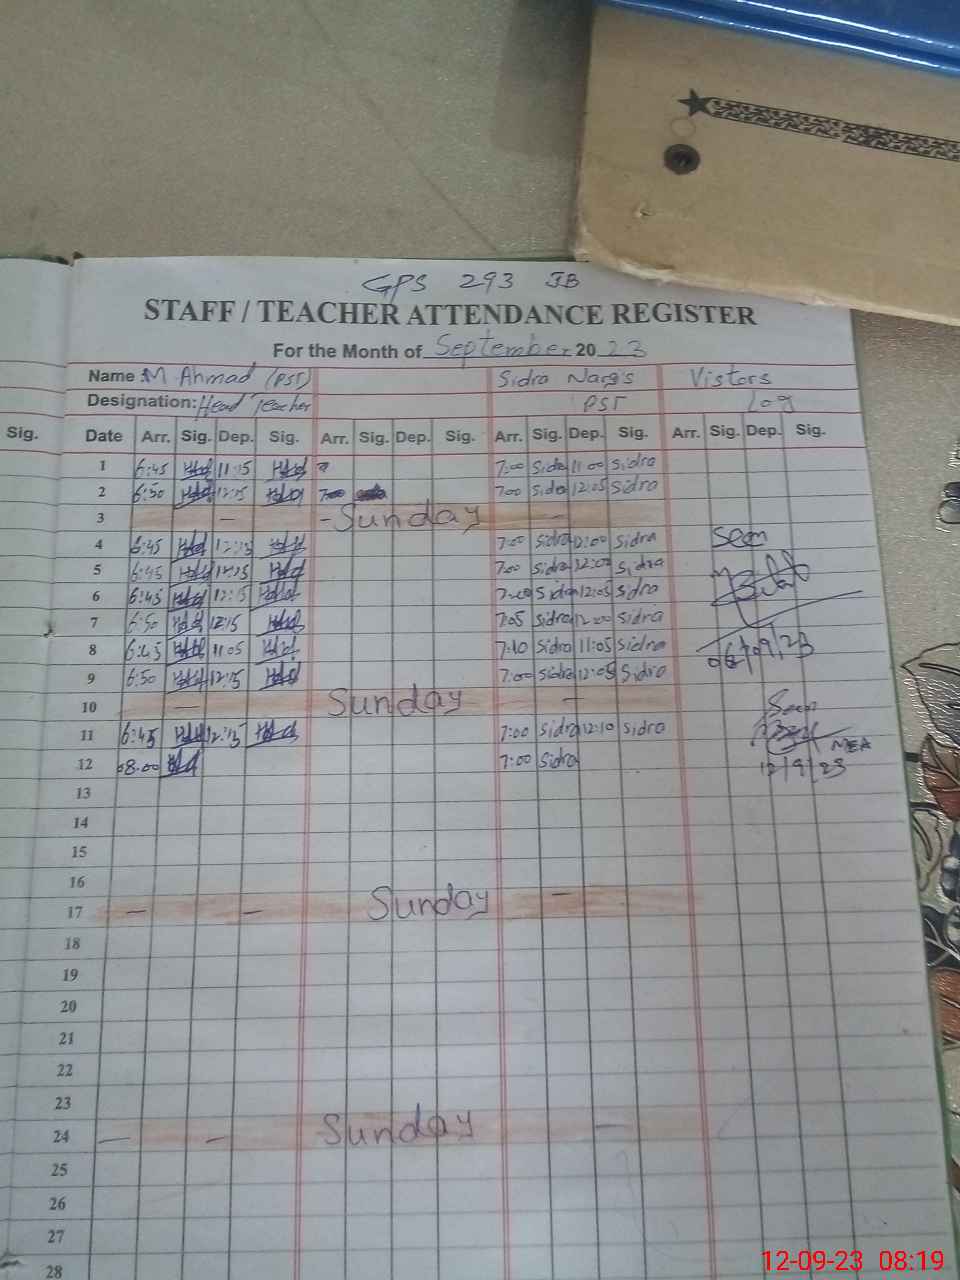 GPS 293 JB
STAFF / TEACHER ATTENDANCE REGISTER
For the Month of September 20 23
Name : M Ahmad (PST) Sidra Nargis Vistors
Designation: Head Teacher PST Log
Sig. Date Arr. Sig. Dep. Sig. Arr. Sig. Dep. Sig. Arr. Sig. Dep. Sig. Arr. Sig. Dep. Sig.
1 6:45 11:15 7:00 Sidra 11:00 Sidra
2 6:50 12:15 7:00 Sidra 12:05 Sidra
3 — - Sunday —
4 6:45 12:15 7:00 Sidra 12:00 Sidra Seen
5 6:45 12:15 7:00 Sidra 12:00 Sidra
6 6:45 12:15 7:00 Sidra 12:05 Sidra
7 6:50 12:15 7:05 Sidra 12:00 Sidra
8 6:45 11:05 7:10 Sidra 11:05 Sidra 06/09/23
9 6:50 12:15 7:00 Sidra 12:05 Sidra
10 — Sunday — Seen
11 6:45 12:15 7:00 Sidra 12:10 Sidra MEA
12 08:00 7:00 Sidra 12/9/23
13
14
15
16
17 — — Sunday —
18
19
20
21
22
23
24 — — Sunday —
25
26
27
28
12-09-23 08:19